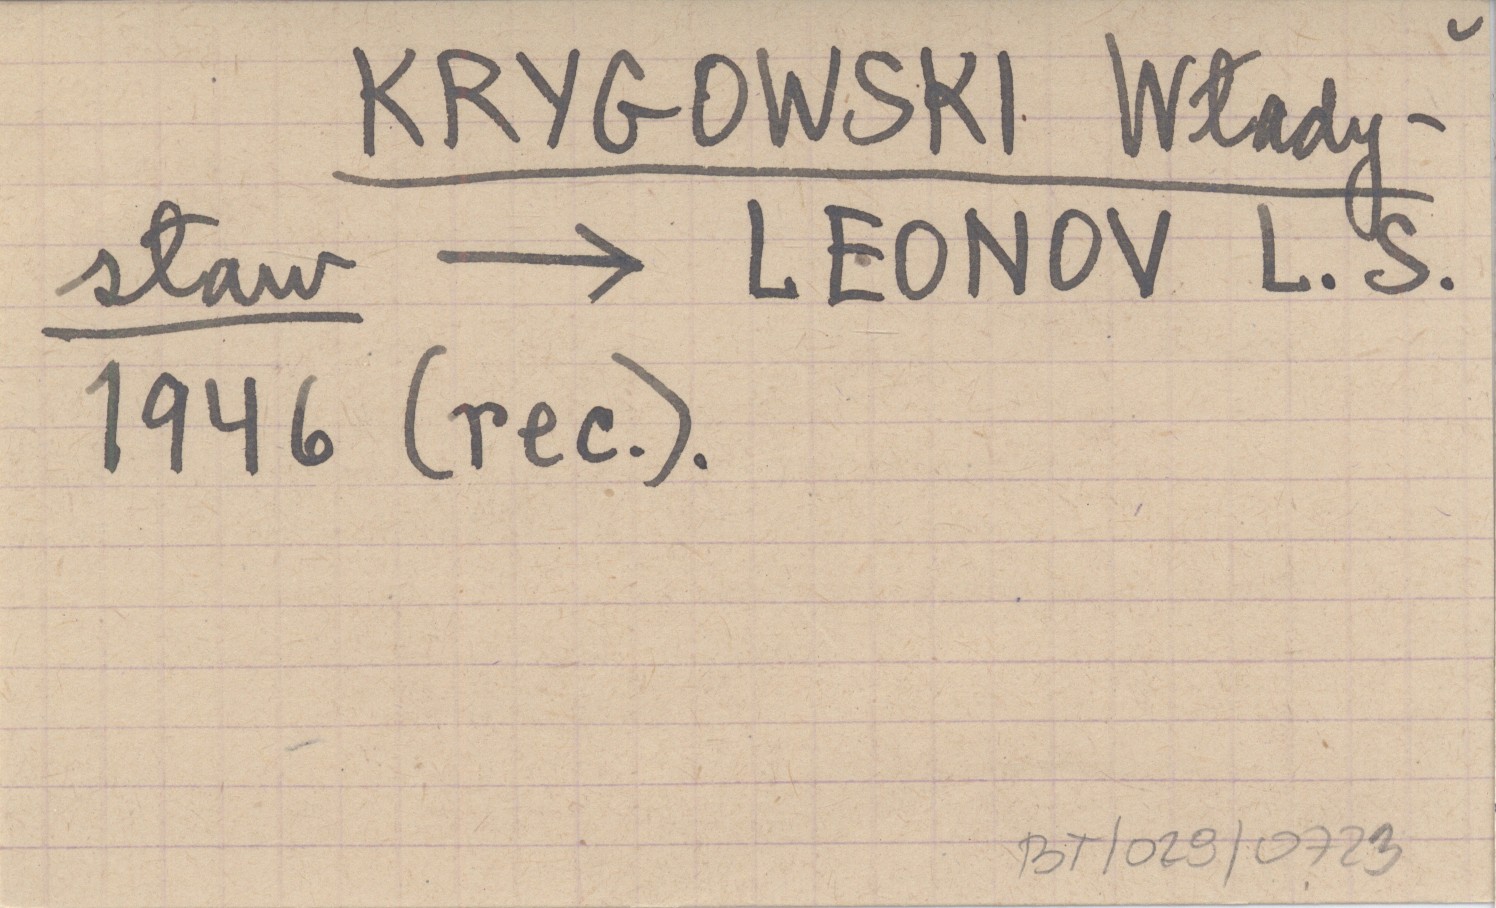 KRYGOWSKI Włady-
sław → LEONOV L.S.
1946 (rec.).
BT/029/0723